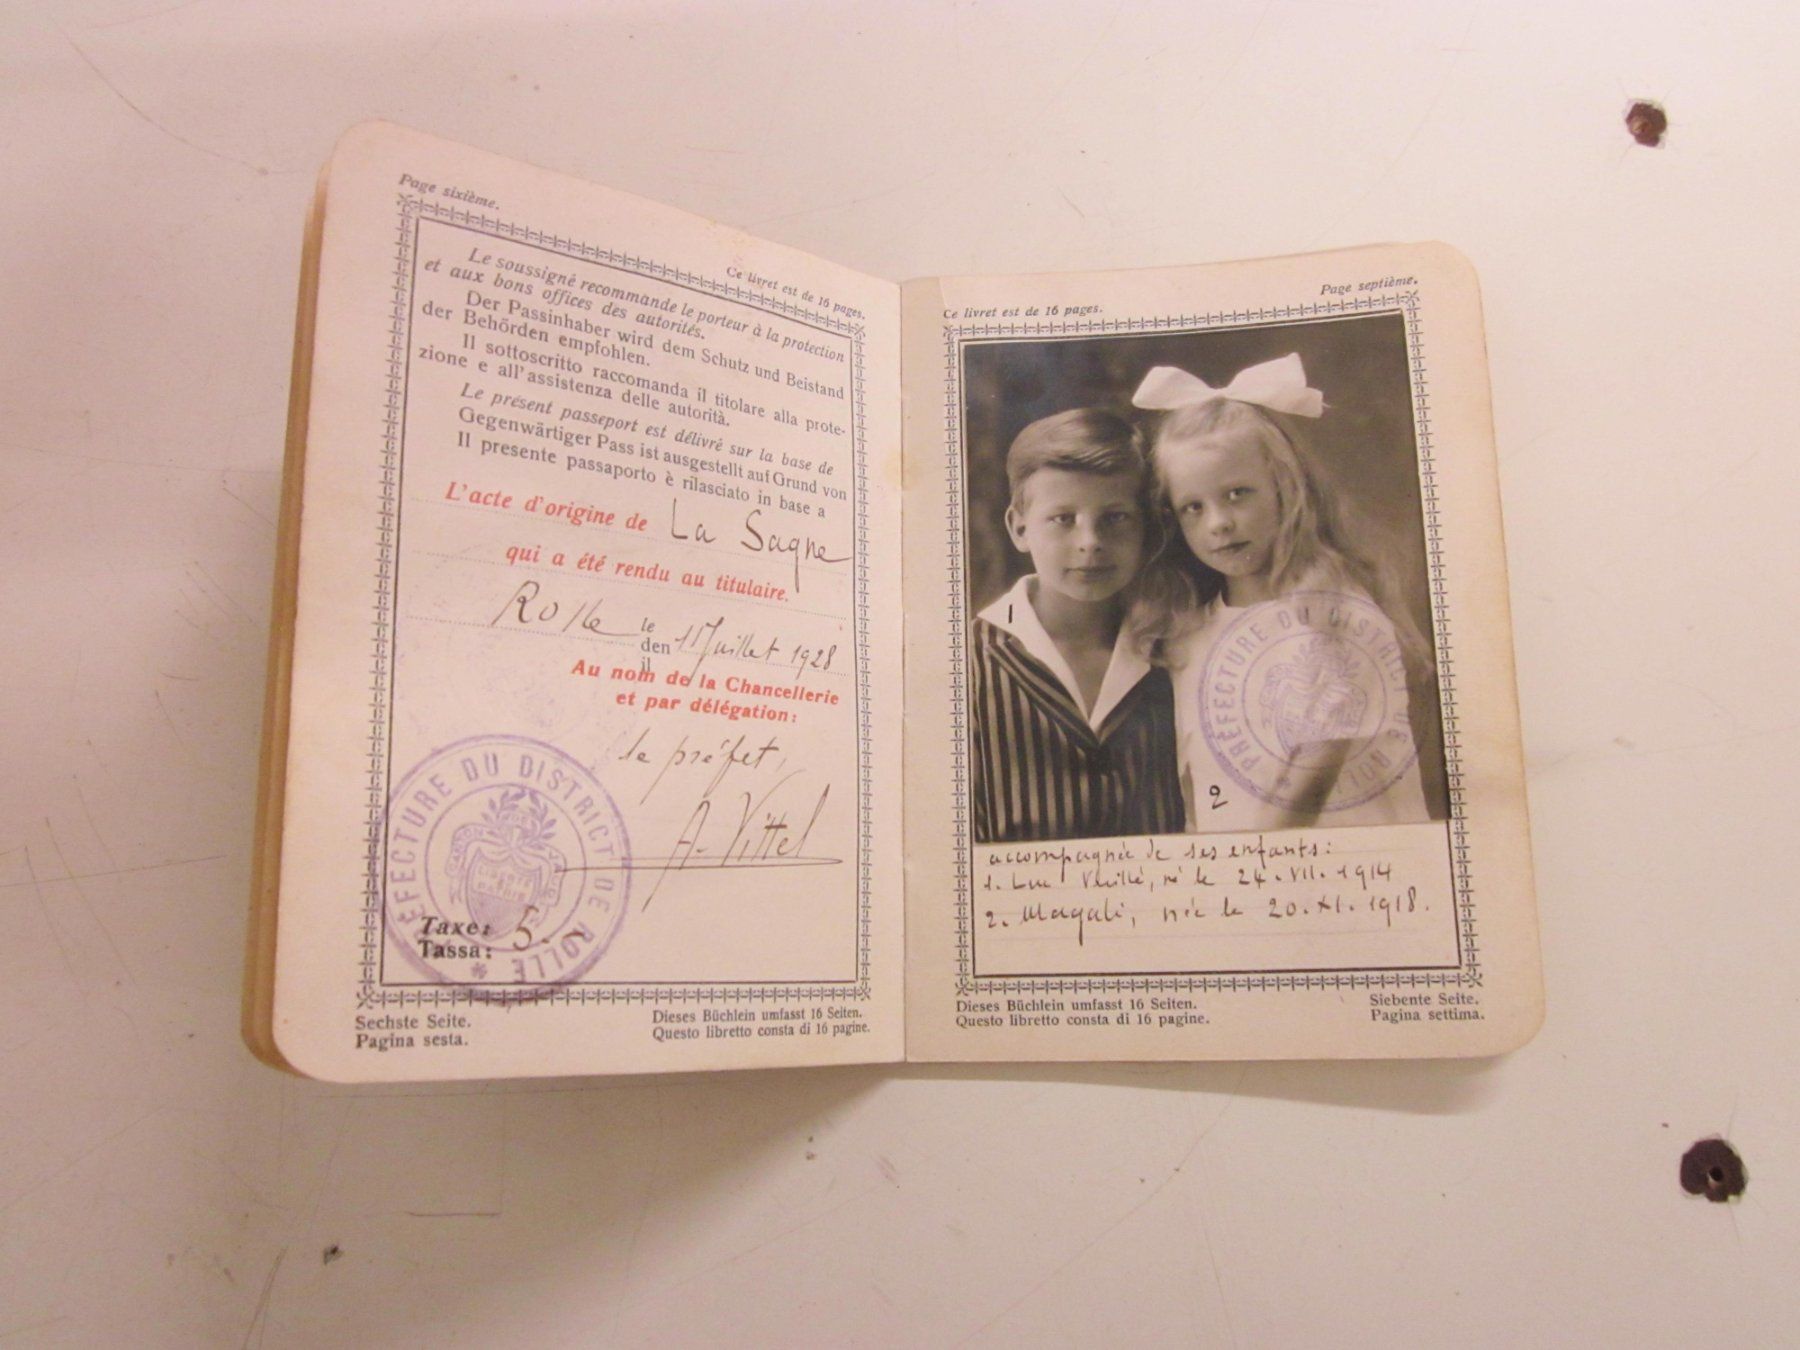 Page sixième.
Ce livret est de 16 pages.
Le soussigné recommande le porteur à la protection
et aux bons offices des autorités.
Der Passinhaber wird dem Schutz und Beistand
der Behörden empfohlen.
Il sottoscritto raccomanda il titolare alla prote-
zione e all'assistenza delle autorità.
Le présent passeport est délivré sur la base de
Gegenwärtiger Pass ist ausgestellt auf Grund von
Il presente passaporto è rilasciato in base a
L'acte d'origine de La Sagne
qui a été rendu au titulaire.
Rolle le
den 11 Juillet 1928
il
Au nom de la Chancellerie
et par délégation:
le préfet,
A. Vittel
PRÉFECTURE DU DISTRICT DE ROLLE
CANTON DE VAUD
LIBERTÉ
ET
PATRIE
Taxe: 5.-
Tassa:
Sechste Seite.
Pagina sesta.
Dieses Büchlein umfasst 16 Seiten.
Questo libretto consta di 16 pagine.
Ce livret est de 16 pages.
Page septième.
1
2
PRÉFECTURE DU DISTRICT DE ROLLE
accompagnée de ses enfants:
1. Luc né le 24.VII.1914
2. Magali, née le 20.XI.1918.
Dieses Büchlein umfasst 16 Seiten.
Questo libretto consta di 16 pagine.
Siebente Seite.
Pagina settima.